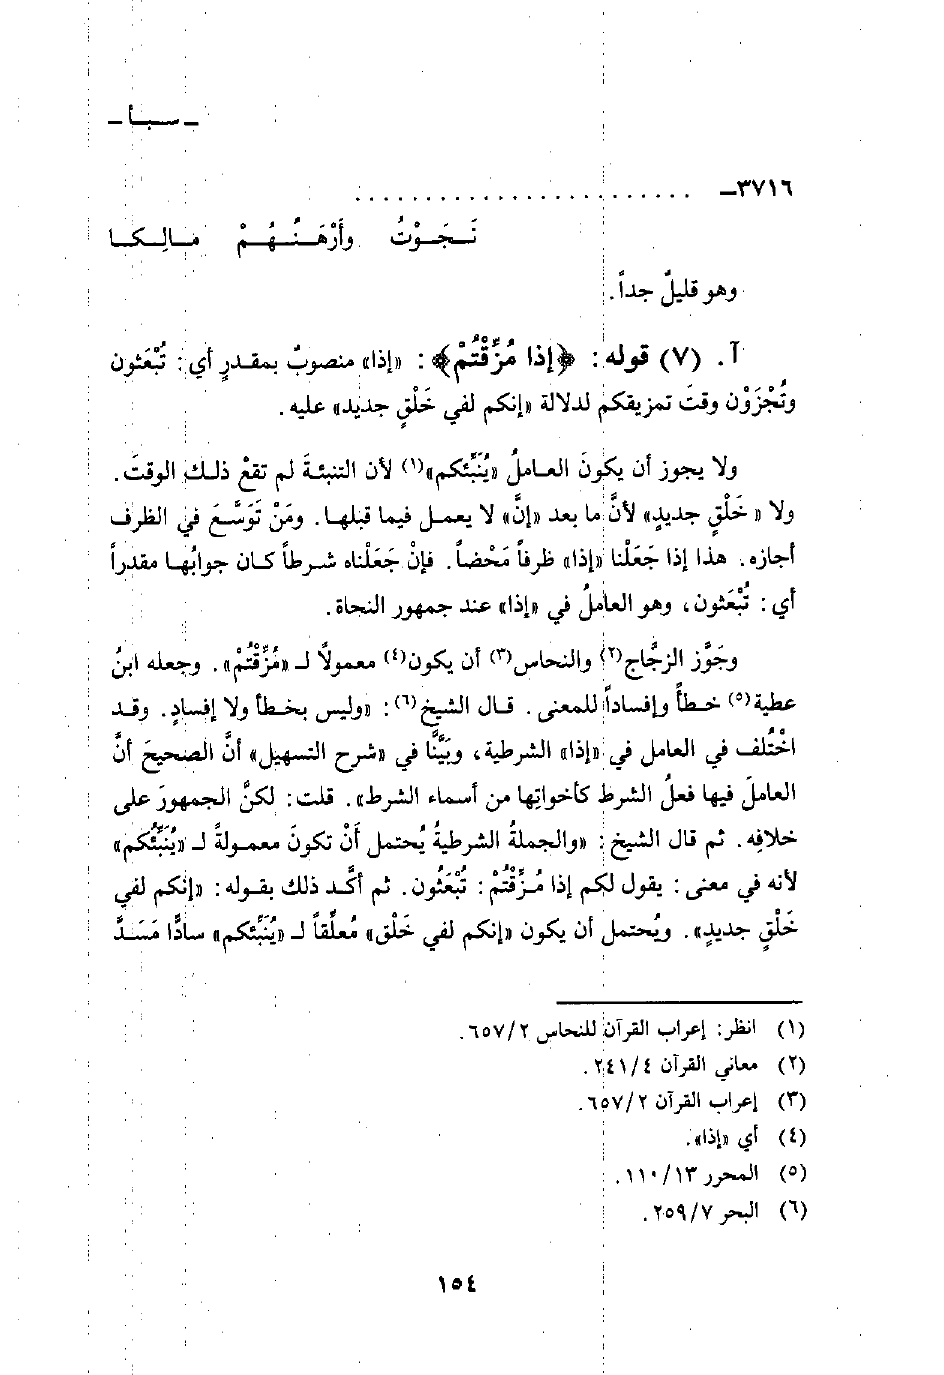 ـ سبأ ـ
٣٧١٦ـ . . . . . . . . . . . . . . . . . . . . . . . .
نَجَوْتُ وأَرْهَنُهُمْ مالِكا
وهو قليلٌ جداً.
آ. (٧) قوله: ﴿إذا مُزِّقْتُمْ﴾: «إذا» منصوبٌ بمقدرٍ أي: تُبْعَثون
وتُجْزَوْن وقتَ تمزيقكم لدلالة «إنكم لفي خَلْقٍ جديد» عليه.
ولا يجوز أن يكونَ العاملُ «يُنَبِّئكم»(١) لأن التنبئةَ لم تقعْ ذلك الوقتَ.
ولا «خَلْقٍ جديدٍ» لأنَّ ما بعد «إنَّ» لا يعمل فيما قبلها. ومَنْ تَوَسَّعَ في الظرف
أجازه. هذا إذا جَعَلْنا «إذا» ظرفاً مَحْضاً. فإنْ جَعَلْناه شرطاً كان جوابُها مقدراً
أي: تُبْعَثون، وهو العاملُ في «إذا» عند جمهور النحاة.
وجَوَّز الزجَّاج(٢) والنحاس(٣) أن يكون(٤) معمولًا لـ «مُزِّقْتُمْ». وجعله ابنُ
عطية(٥) خطأً وإفساداً للمعنى. قال الشيخ(٦): «وليس بخطأ ولا إفسادٍ. وقد
اخْتُلف في العامل في «إذا» الشرطية، وبَيَّنَّا في «شرح التسهيل» أنَّ الصحيحَ أنَّ
العاملَ فيها فعلُ الشرط كأخواتِها من أسماء الشرط». قلت: لكنَّ الجمهورَ على
خلافِه. ثم قال الشيخ: «والجملةُ الشرطيةُ يُحتمل أَنْ تكونَ معمولةً لـ «يُنَبِّئُكم»
لأنه في معنى: يقول لكم إذا مُزِّقْتُمْ: تُبْعَثُون. ثم أكَّد ذلك بقوله: «إنكم لفي
خَلْقٍ جديدٍ». ويُحتمل أن يكون «إنكم لفي خَلْق» مُعلِّقاً لـ «يُنَبِّئكم» سادًّا مَسَدَّ
(١) انظر: إعراب القرآن للنحاس ٦٥٧/٢.
(٢) معاني القرآن ٢٤١/٤.
(٣) إعراب القرآن ٦٥٧/٢.
(٤) أي «إذا».
(٥) المحرر ١١٠/١٣.
(٦) البحر ٢٥٩/٧.
١٥٤